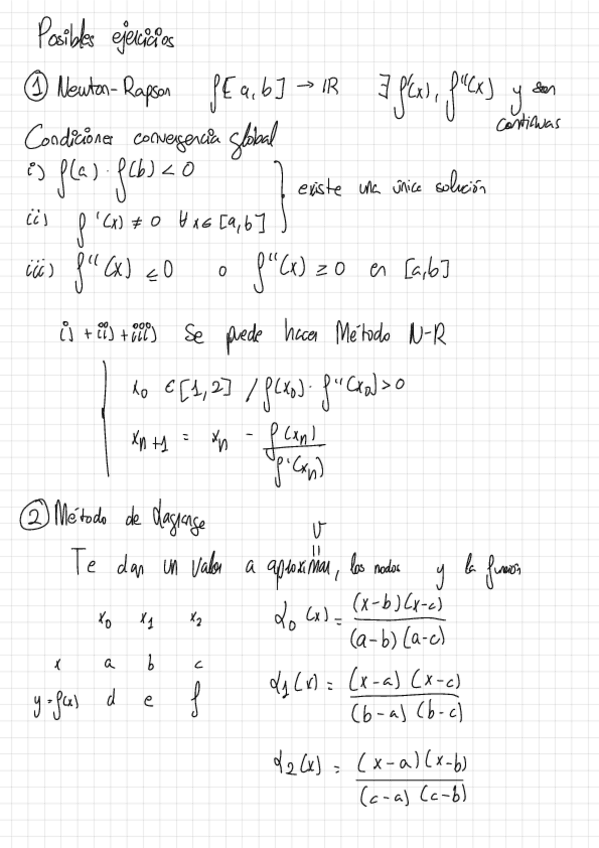 Posibles ejercicios
① Newton-Rapson f[a,b] → IR ∃ f'(x), f''(x) y son continuas
Condiciones convergencia global
i) f(a) · f(b) < 0
ii) f'(x) ≠ 0 ∀x∈[a,b] } existe una única solución
iii) f''(x) ≤ 0 o f''(x) ≥ 0 en [a,b]
i) + ii) + iii) Se puede hacer Método N-R
x₀ ∈ [1,2] / f(x₀) · f''(x₀) > 0
xₙ₊₁ = xₙ - f(xₙ) / f'(xₙ)
② Método de Lagrange
v
||
Te dan un valor a aproximar, los nodos y la funcion
x₀ x₁ x₂
x a b c
y = f(x) d e f
L₀(x) = (x-b)(x-c) / (a-b)(a-c)
L₁(x) = (x-a)(x-c) / (b-a)(b-c)
L₂(x) = (x-a)(x-b) / (c-a)(c-b)